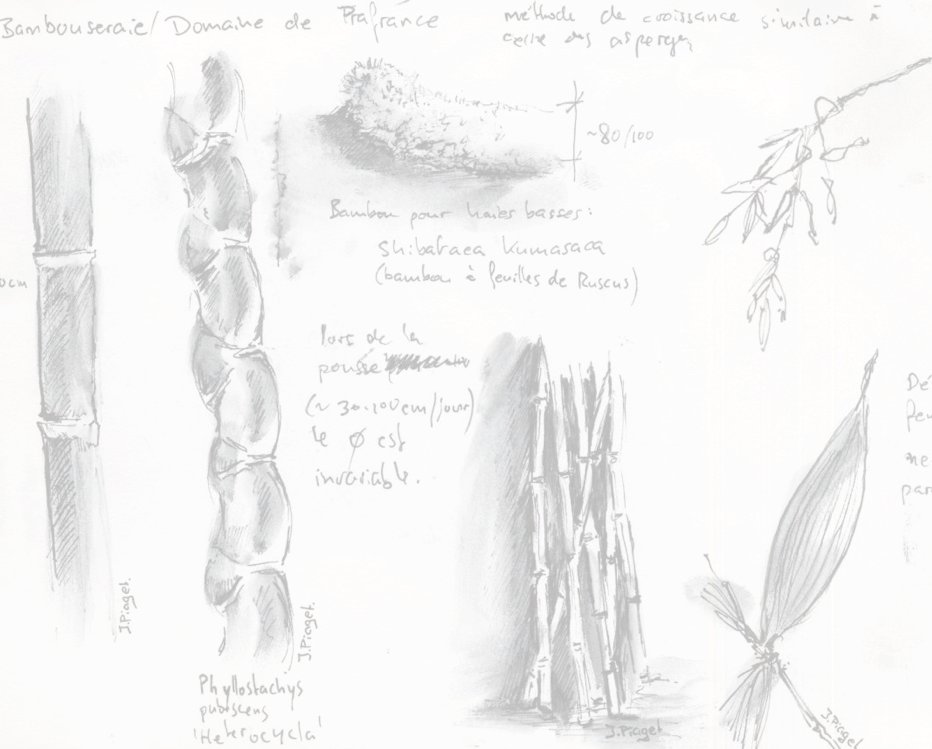 Bambouseraie/ Domaine de Prafrance
méthode de croissance similaire à
celle des asperges
~80/100
Bambou pour haies basses:
Shibataea Kumasaca
(bambou à feuilles de Ruscus)
0cm
lors de la
poussée
(~ 30-100cm/jour)
le ø est
invariable.
Dé
ne
par
J.Piaget.
J.Piaget.
Phyllostachys
pubescens
'Heterocycla'
J.Piaget
J.Piaget